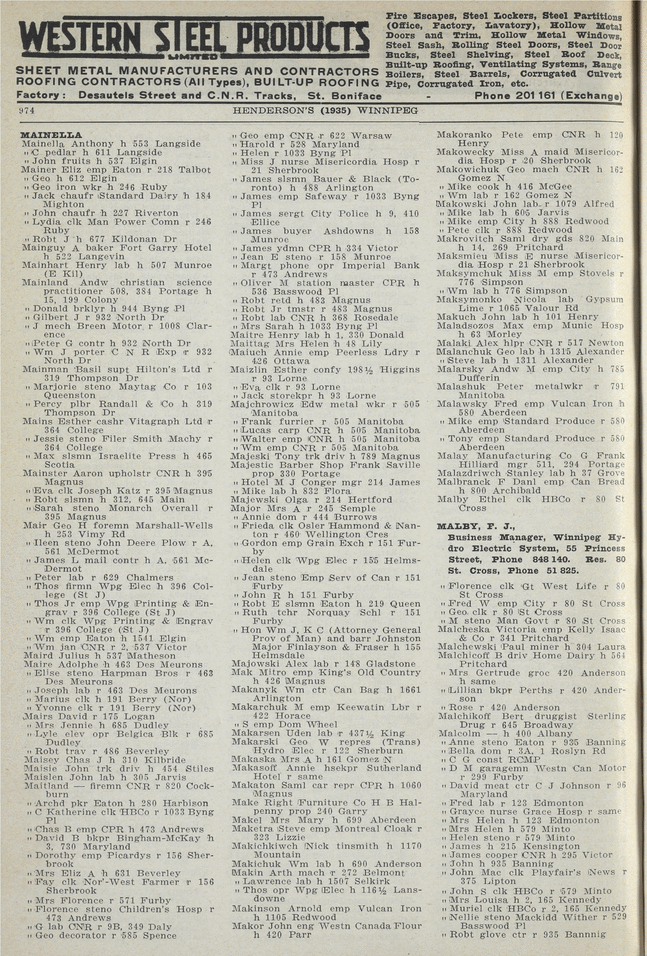 WESTERN STEEL PRODUCTS
LIMITED
SHEET METAL MANUFACTURERS AND CONTRACTORS
ROOFING CONTRACTORS (All Types), BUILT-UP ROOFING
Fire Escapes, Steel Lockers, Steel Partitions
(Office, Factory, Lavatory), Hollow Metal
Doors and Trim, Hollow Metal Windows,
Steel Sash, Rolling Steel Doors, Steel Door
Bucks, Steel Shelving, Steel Roof Deck,
Built-up Roofing, Ventilating Systems, Range
Boilers, Steel Barrels, Corrugated Culvert
Pipe, Corrugated Iron, etc.
Factory: Desautels Street and C.N.R. Tracks, St. Boniface - Phone 201 161 (Exchange)
974 HENDERSON'S (1935) WINNIPEG
MAINELLA
Mainella Anthony h 553 Langside
" C pedlar h 611 Langside
" John fruits h 537 Elgin
Mainer Eliz emp Eaton r 218 Talbot
" Geo h 612 Elgin
" Geo iron wkr h 246 Ruby
" Jack chaufr Standard Dairy h 184
Mighton
" John chaufr h 227 Riverton
" Lydia clk Man Power Comn r 246
Ruby
" Robt J h 677 Kildonan Dr
Mainguy A baker Fort Garry Hotel
h 522 Langevin
Mainhart Henry lab h 507 Munroe
(E Kil)
Mainland Andw christian science
practitioner 508, 384 Portage h
15, 199 Colony
" Donald brklyr h 944 Byng Pl
" Gilbert J r 932 North Dr
" J mech Breen Motor r 1008 Clar-
ence
" Peter G contr h 932 North Dr
" Wm J porter C N R Exp r 932
North Dr
Mainman Basil supt Hilton's Ltd r
319 Thompson Dr
" Marjorie steno Maytag Co r 103
Queenston
" Percy plbr Randall & Co h 319
Thompson Dr
Mains Esther cashr Vitagraph Ltd r
364 College
" Jessie steno Filer Smith Machy r
364 College
" Max slsmn Israelite Press h 465
Scotia
Mainster Aaron upholstr CNR h 395
Magnus
" Eva clk Joseph Katz r 395 Magnus
" Robt slsmn h 312, 645 Main
" Sarah steno Monarch Overall r
395 Magnus
Mair Geo H foremn Marshall-Wells
h 253 Vimy Rd
" Ileen steno John Deere Plow r A,
561 McDermot
" James L mail contr h A, 561 Mc-
Dermot
" Peter lab r 629 Chalmers
" Thos firmn Wpg Elec h 396 Col-
lege (St J)
" Thos Jr emp Wpg Printing & En-
grav r 396 College (St J)
" Wm clk Wpg Printing & Engrav
r 396 College (St J)
" Wm emp Eaton h 1541 Elgin
" Wm jan CNR r 2, 537 Victor
Maird Julius h 537 Matheson
Maire Adolphe h 463 Des Meurons
" Elise steno Harpman Bros r 463
Des Meurons
" Joseph lab r 463 Des Meurons
" Marius clk h 191 Berry (Nor)
" Yvonne clk r 191 Berry (Nor)
Mairs David r 175 Logan
" Mrs Jennie h 685 Dudley
" Lyle elev opr Belgica Blk r 685
Dudley
" Robt trav r 486 Beverley
Maisey Chas J h 310 Kilbride
Maisie John trk driv h 454 Stiles
Maislen John lab h 305 Jarvis
Maitland — firemn CNR r 820 Cock-
burn
" Archd pkr Eaton h 280 Harbison
" C Katherine clk HBCo r 1033 Byng
Pl
" Chas B emp CPR h 473 Andrews
" David B bkpr Bingham-McKay h
3, 730 Maryland
" Dorothy emp Picardys r 156 Sher-
brook
" Mrs Eliz A h 631 Beverley
" Fay clk Nor'-West Farmer r 156
Sherbrook
" Mrs Florence r 571 Furby
" Florence steno Children's Hosp r
473 Andrews
" G lab CNR r 9B, 349 Daly
" Geo decorator r 585 Spence
" Geo emp CNR r 622 Warsaw
" Harold r 528 Maryland
" Helen r 1033 Byng Pl
" Miss J nurse Misericordia Hosp r
21 Sherbrook
" James slsmn Bauer & Black (To-
ronto) h 488 Arlington
" James emp Safeway r 1033 Byng
Pl
" James sergt City Police h 9, 410
Ellice
" James buyer Ashdowns h 158
Munroe
" James ydmn CPR h 334 Victor
" Jean E steno r 158 Munroe
" Margt phone opr Imperial Bank
r 473 Andrews
" Oliver M station master CPR h
536 Basswood Pl
" Robt retd h 483 Magnus
" Robt Jr tmstr r 483 Magnus
" Robt lab CNR h 368 Rosedale
" Mrs Sarah h 1033 Byng Pl
Maitre Henry lab h 1, 330 Donald
Maittag Mrs Helen h 48 Lily
Maiuch Annie emp Peerless Ldry r
426 Ottawa
Maizlin Esther confy 198½ Higgins
r 93 Lorne
" Eva clk r 93 Lorne
" Jack storekpr h 93 Lorne
Majchrowicz Edw metal wkr r 505
Manitoba
" Frank furrier r 505 Manitoba
" Lucas carp CNR h 505 Manitoba
" Walter emp CNR h 505 Manitoba
" Wm emp CNR r 505 Manitoba
Majeski Tony trk driv h 789 Magnus
Majestic Barber Shop Frank Saville
prop 330 Portage
" Hotel M J Conger mgr 214 James
" Mike lab h 832 Flora
Majewski Olga r 214 Hertford
Major Mrs A r 245 Semple
" Annie dom r 444 Burrows
" Frieda clk Osler Hammond & Nan-
ton r 460 Wellington Cres
" Gordon emp Grain Exch r 151 Fur-
by
" Helen clk Wpg Elec r 155 Helms-
dale
" Jean steno Emp Serv of Can r 151
Furby
" John R h 151 Furby
" Robt E slsmn Eaton h 219 Queen
" Ruth tchr Norquay Schl r 151
Furby
" Hon Wm J, K C (Attorney General
Prov of Man) and barr Johnston
Major Finlayson & Fraser h 155
Helmsdale
Majowski Alex lab r 148 Gladstone
Mak Mitro emp King's Old Country
h 426 Magnus
Makanyk Wm ctr Can Bag h 1661
Arlington
Makarchuk M emp Keewatin Lbr r
422 Horace
" S emp Dom Wheel
Makarsen Uden lab r 437½ King
Makarski Geo W repres (Trans)
Hydro Elec r 122 Sherburn
Makaska Mrs A h 161 Gomez N
Makasoff Annie hsekpr Sutherland
Hotel r same
Makaton Saml car repr CPR h 1060
Magnus
Make Right Furniture Co H B Hal-
penny prop 240 Garry
Makel Mrs Mary h 693 Aberdeen
Maketra Steve emp Montreal Cloak r
323 Lizzie
Makichkiwch Nick tinsmith h 1170
Mountain
Makichuk Wm lab h 690 Anderson
Makin Arth mach r 272 Belmont
" Lawrence lab h 1507 Selkirk
" Thos opr Wpg Elec h 116½ Lans-
downe
Makinson Arnold emp Vulcan Iron
h 1105 Redwood
Makor John eng Westn Canada Flour
h 420 Parr
Makoranko Pete emp CNR h 120
Henry
Makowecky Miss A maid Misericor-
dia Hosp r 20 Sherbrook
Makowichuk Geo mach CNR h 162
Gomez N
" Mike cook h 416 McGee
" Wm lab r 162 Gomez N
Makowski John lab r 1079 Alfred
" Mike lab h 605 Jarvis
" Mike emp City h 888 Redwood
" Pete clk r 888 Redwood
Makrovitch Saml dry gds 820 Main
h 14, 269 Pritchard
Maksmieu Miss E nurse Misericor-
dia Hosp r 21 Sherbrook
Maksymchuk Miss M emp Stovels r
776 Simpson
" Wm lab h 776 Simpson
Maksymonko Nicola lab Gypsum
Lime r 1065 Valour Rd
Makuch John lab h 101 Henry
Maladsozos Max emp Munic Hosp
h 63 Morley
Malaki Alex hlpr CNR r 517 Newton
Malanchuk Geo lab h 1315 Alexander
" Steve lab h 1311 Alexander
Malarsky Andw M emp City h 785
Dufferin
Malashuk Peter metalwkr r 791
Manitoba
Malawsky Fred emp Vulcan Iron h
580 Aberdeen
" Mike emp Standard Produce r 580
Aberdeen
" Tony emp Standard Produce r 580
Aberdeen
Malay Manufacturing Co G Frank
Hilliard mgr 511, 294 Portage
Malazdriwch Stanley lab h 37 Grove
Malbranck F Danl emp Can Bread
h 800 Archibald
Malby Ethel clk HBCo r 80 St
Cross
MALBY, F. J.,
Business Manager, Winnipeg Hy-
dro Electric System, 55 Princess
Street, Phone 848 140. Res. 80
St. Cross, Phone 51 825.
" Florence clk Gt West Life r 80
St Cross
" Fred W emp City r 80 St Cross
" Geo clk r 80 St Cross
" M steno Man Govt r 80 St Cross
Malcheska Victoria emp Kelly Isaac
& Co r 341 Pritchard
Malchewski Paul miner h 304 Laura
Malchicoff B driv Home Dairy h 564
Pritchard
" Mrs Gertrude groc 420 Anderson
h same
" Lillian bkpr Perths r 420 Ander-
son
" Rose r 420 Anderson
Malchikoff Bert druggist Sterling
Drug r 645 Broadway
Malcolm — h 400 Albany
" Anne steno Eaton r 935 Banning
" Bella dom r 3A, 1 Roslyn Rd
" C G const RCMP
" D M garagemn Westn Can Motor
r 299 Furby
" David meat ctr C J Johnson r 96
Maryland
" Fred lab r 123 Edmonton
" Grayce nurse Grace Hosp r same
" Mrs Helen h 123 Edmonton
" Mrs Helen h 579 Minto
" Helen steno r 579 Minto
" James h 215 Kensington
" James cooper CNR h 295 Victor
" John h 935 Banning
" John Mac clk Playfair's News r
375 Lipton
" John S clk HBCo r 579 Minto
" Mrs Louisa h 2, 165 Kennedy
" Muriel clk HBCo r 2, 165 Kennedy
" Nellie steno Mackidd Wither r 529
Basswood Pl
" Robt glove ctr r 935 Bannnig